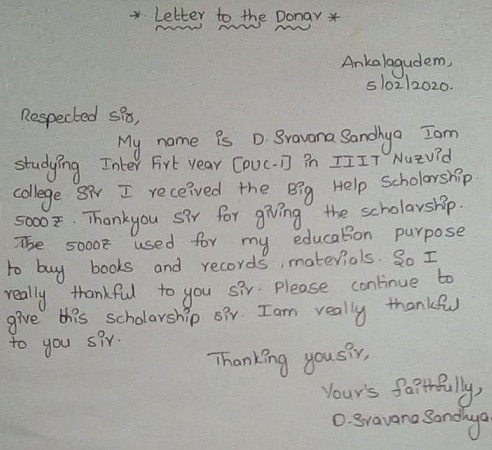 * Letter to the Donar *
Ankalagudem,
5/02/2020.
Respected sir,
My name is D. Sravana Sandhya Iam
studying Inter Firt year [PUC-I] in IIIT Nuzvid
college. Sir I received the Big Help Scholarship
5000₹. Thankyou sir for giving the scholarship.
The 5000₹ used for my education purpose
to buy books and records, materials. So I
really thankful to you sir. Please continue to
give this scholarship sir. Iam really thankful
to you sir.
Thanking yousir,
Your's faithfully,
D. Sravana Sandhya.